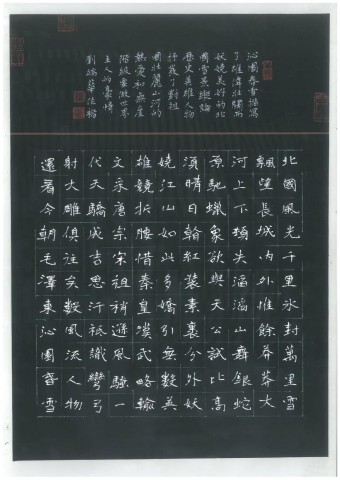 沁園春雪描寫
了雄偉壯闊而
妖嬈美好的北
國雪景縱論
歷史英雄人物
抒發了對祖
國壯麗山河的
熱愛和無產
階級要做世界
主人的豪情
北國風光千里冰封萬里雪
飄望長城內外惟餘莽莽大
河上下頓失滔滔山舞銀蛇
原馳蠟象欲與天公試比高
須晴日看紅裝素裹分外妖
嬈江山如此多嬌引無數英
雄競折腰惜秦皇漢武略輸
文采唐宗宋祖稍遜風騷一
代天驕成吉思汗祗識彎弓
射大雕俱往矣數風流人物
還看今朝毛澤東沁園春雪